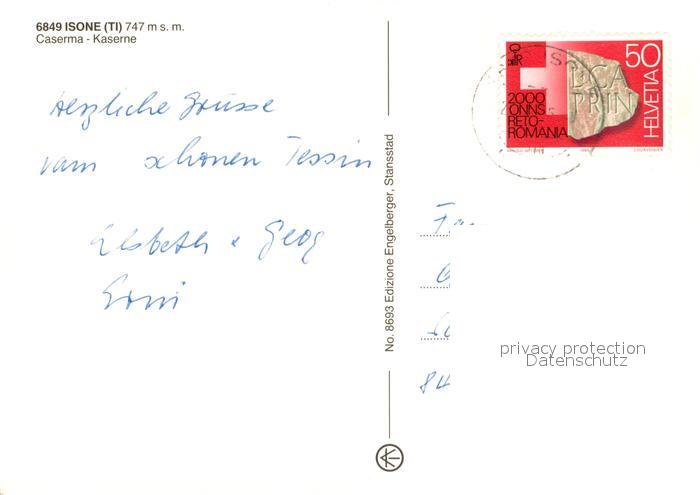 6849 ISONE (TI) 747 m s. m.
Caserma - Kaserne
Herzliche Grüsse
vom schönen Tessin
Elsbeth + Georg
Erni
No. 8693 Edizione Engelberger, Stansstad
50
HELVETIA
2000
ONNS
RETO-
ROMANIA
DCA
PRIN
84
privacy protection
Datenschutz